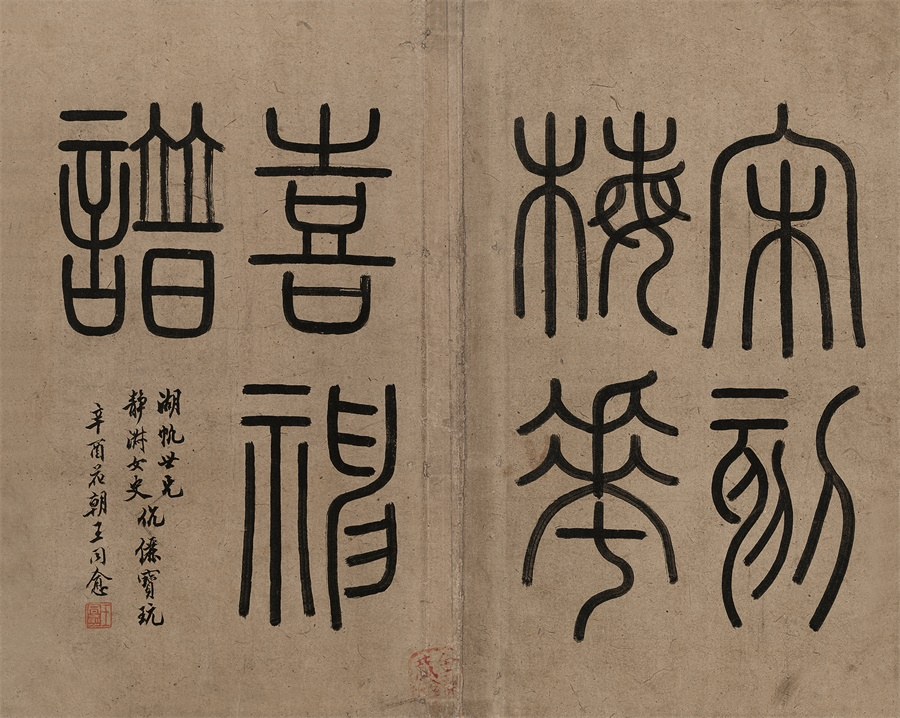 宋刻
梅華
喜神
譜
湖帆世兄
靜淑女史
伉儷寶玩
辛酉花朝王同愈